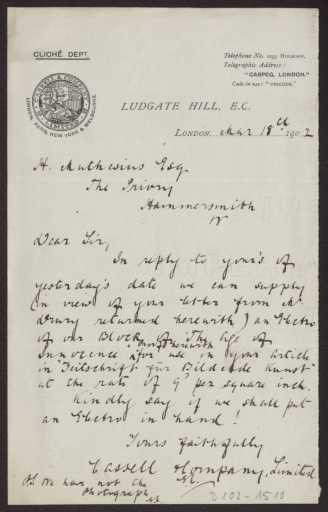 CLICHÉ DEPT.
Telephone No. 1293 HOLBORN.
Telegraphic Address:
"CASPEG, LONDON."
Code in use: "UNICODE."
CASSELL & COMPANY
LIMITED
LONDON, PARIS, NEW YORK & MELBOURNE
LUDGATE HILL, E.C.
LONDON, Mar 18th 1902
H. Muthesius Esq.
The Priory
Hammersmith
W
Dear Sir,
In reply to yours of
yesterday's date we can supply
(in view of your letter from Mr
Drury returned herewith) an Electro
of our Block of "The Age of
Innocence" for use in your article
in "Zeitschrift für Bildende Kunst"
at the rate of 9d per square inch.
Kindly say if we shall put
an Electro in hand!
Yours faithfully
Cassell & Company, Limited
PS We have not the
photograph
D 102-1510